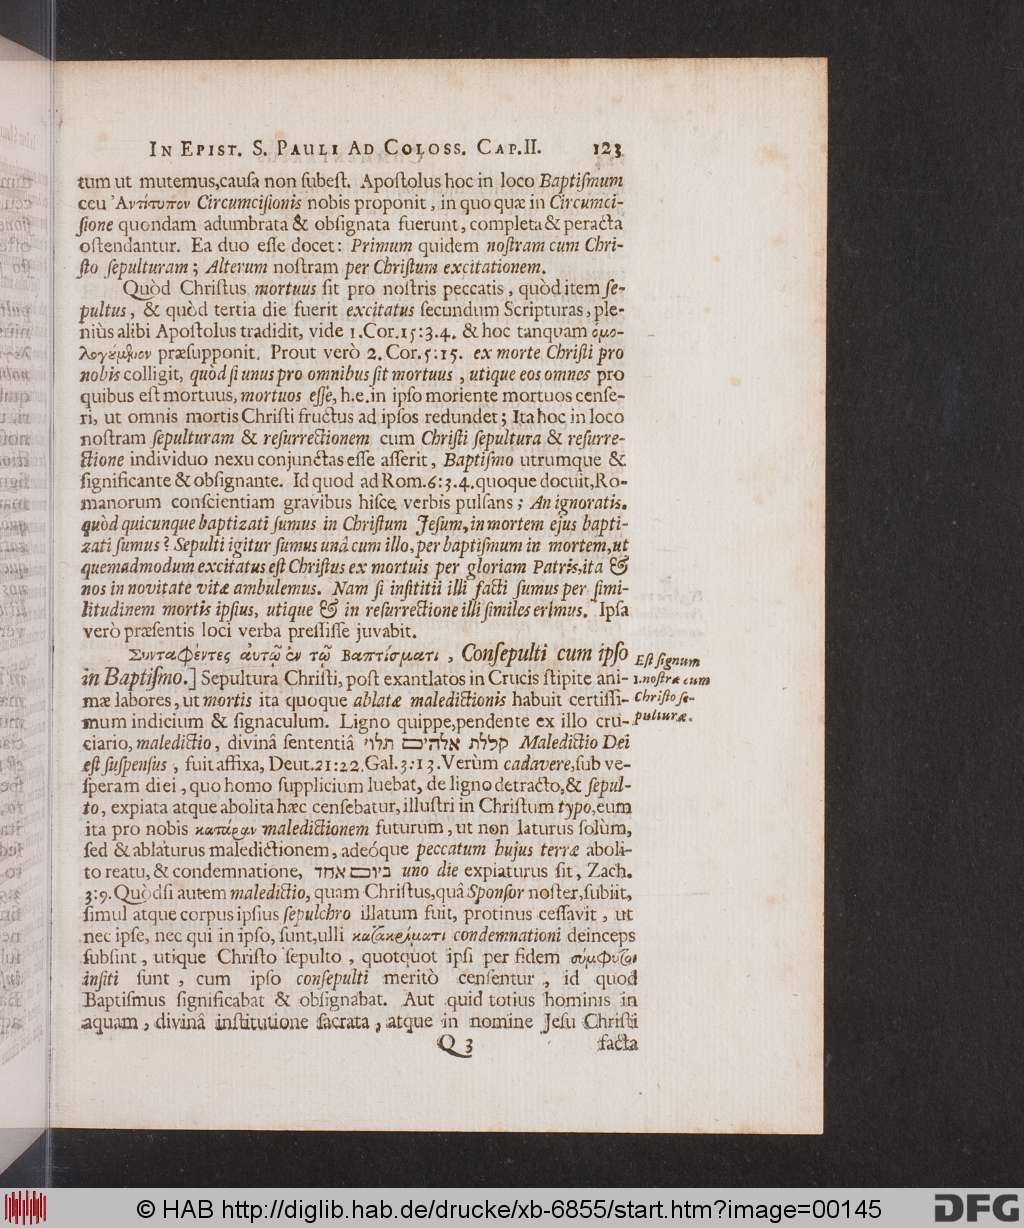 IN EPIST. S. PAULI AD COLOSS. CAP.II. 123
tum ut mutemus,cauſa non ſubeſt. Apoſtolus hoc in loco Baptiſmum
ceu Ἀντίτυπον Circumciſionis nobis proponit, in quo quæ in Circumci-
ſione quondam adumbrata & obſignata fuerunt, completa & peracta
oſtendantur. Ea duo eſſe docet: Primum quidem noſtram cum Chri-
ſto ſepulturam; Alterum noſtram per Chriſtum excitationem.
Quòd Chriſtus mortuus ſit pro noſtris peccatis, quòd item ſe-
pultus, & quòd tertia die fuerit excitatus ſecundum Scripturas, ple-
niùs alibi Apoſtolus tradidit, vide 1.Cor.15:3.4. & hoc tanquam ὁμο-
λογούμενον præſupponit. Prout verò 2.Cor.5:15. ex morte Chriſti pro
nobis colligit, quòd ſi unus pro omnibus ſit mortuus, utique eos omnes pro
quibus eſt mortuus, mortuos eſſe, h.e.in ipſo moriente mortuos cenſe-
ri, ut omnis mortis Chriſti fructus ad ipſos redundet; Ita hoc in loco
noſtram ſepulturam & reſurrectionem cum Chriſti ſepultura & reſurre-
ctione individuo nexu conjunctas eſſe aſſerit, Baptiſmo utrumque &
ſignificante & obſignante. Id quod ad Rom.6:3.4.quoque docuit,Ro-
manorum conſcientiam gravibus hiſce verbis pulſans; An ignoratis.
quòd quicunque baptizati ſumus in Chriſtum Jeſum, in mortem ejus bapti-
zati ſumus? Sepulti igitur ſumus unâ cum illo, per baptiſmum in mortem, ut
quemadmodum excitatus eſt Chriſtus ex mortuis per gloriam Patris, ita &
nos in novitate vitæ ambulemus. Nam ſi inſititii illi facti ſumus per ſimi-
litudinem mortis ipſius, utique & in reſurrectione illi ſimiles erimus. Ipſa
verò præſentis loci verba preſſiſſe juvabit.
Συνταφέντες αὐτῷ ἐν τῷ Βαπτίσματι, Conſepulti cum ipſo
in Baptiſmo.] Sepultura Chriſti, poſt exantlatos in Crucis ſtipite ani-
mæ labores, ut mortis ita quoque ablatæ maledictionis habuit certiſſi-
mum indicium & ſignaculum. Ligno quippe,pendente ex illo cru-
ciario, maledictio, divinâ ſententiâ קללת אלהים תלוי Maledictio Dei
eſt ſuſpenſus, fuit affixa, Deut.21:22.Gal.3:13.Verùm cadavere,ſub ve-
ſperam diei, quo homo ſupplicium luebat, de ligno detracto,& ſepul-
to, expiata atque abolita hæc cenſebatur, illuſtri in Chriſtum typo,eum
ita pro nobis κατάραν maledictionem futurum, ut non laturus ſolùm,
ſed & ablaturus maledictionem, adeóque peccatum hujus terræ aboli-
to reatu, & condemnatione, ביום אחד uno die expiaturus ſit, Zach.
3:9.Quòdſi autem maledictio, quam Chriſtus,quâ Sponſor noſter,ſubiit,
ſimul atque corpus ipſius ſepulchro illatum fuit, protinus ceſſavit, ut
nec ipſe, nec qui in ipſo, ſunt,ulli κατακρίματι condemnationi deinceps
ſubſint, utique Chriſto ſepulto, quotquot ipſi per fidem σύμφυτοι
inſiti ſunt, cum ipſo conſepulti meritò cenſentur, id quod
Baptiſmus ſignificabat & obſignabat. Aut quid totius hominis in
aquam, divinâ inſtitutione ſacrata, atque in nomine Jeſu Chriſti
Q 3 facta
Eſt ſignum
1.noſtræ cum
Chriſto ſe-
pulturæ.
© HAB http://diglib.hab.de/drucke/xb-6855/start.htm?image=00145
DFG